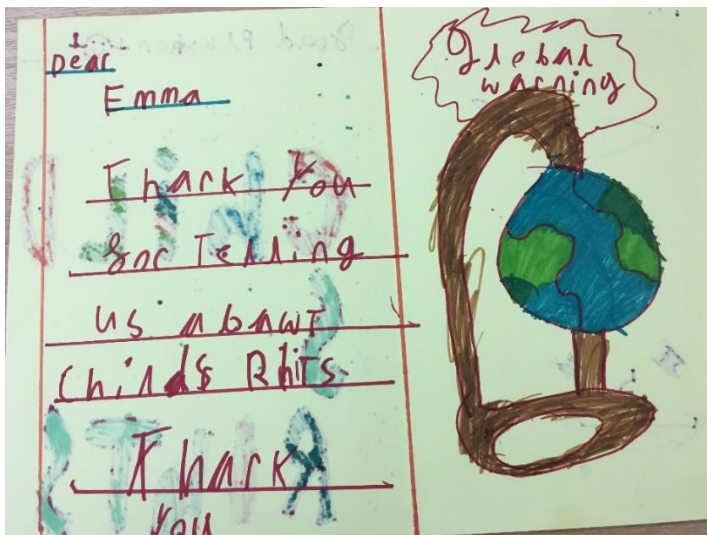 Dear
Emma
Thank You
for Telling
us abawt
Childs RhiTs
Thank
You
Global
warning